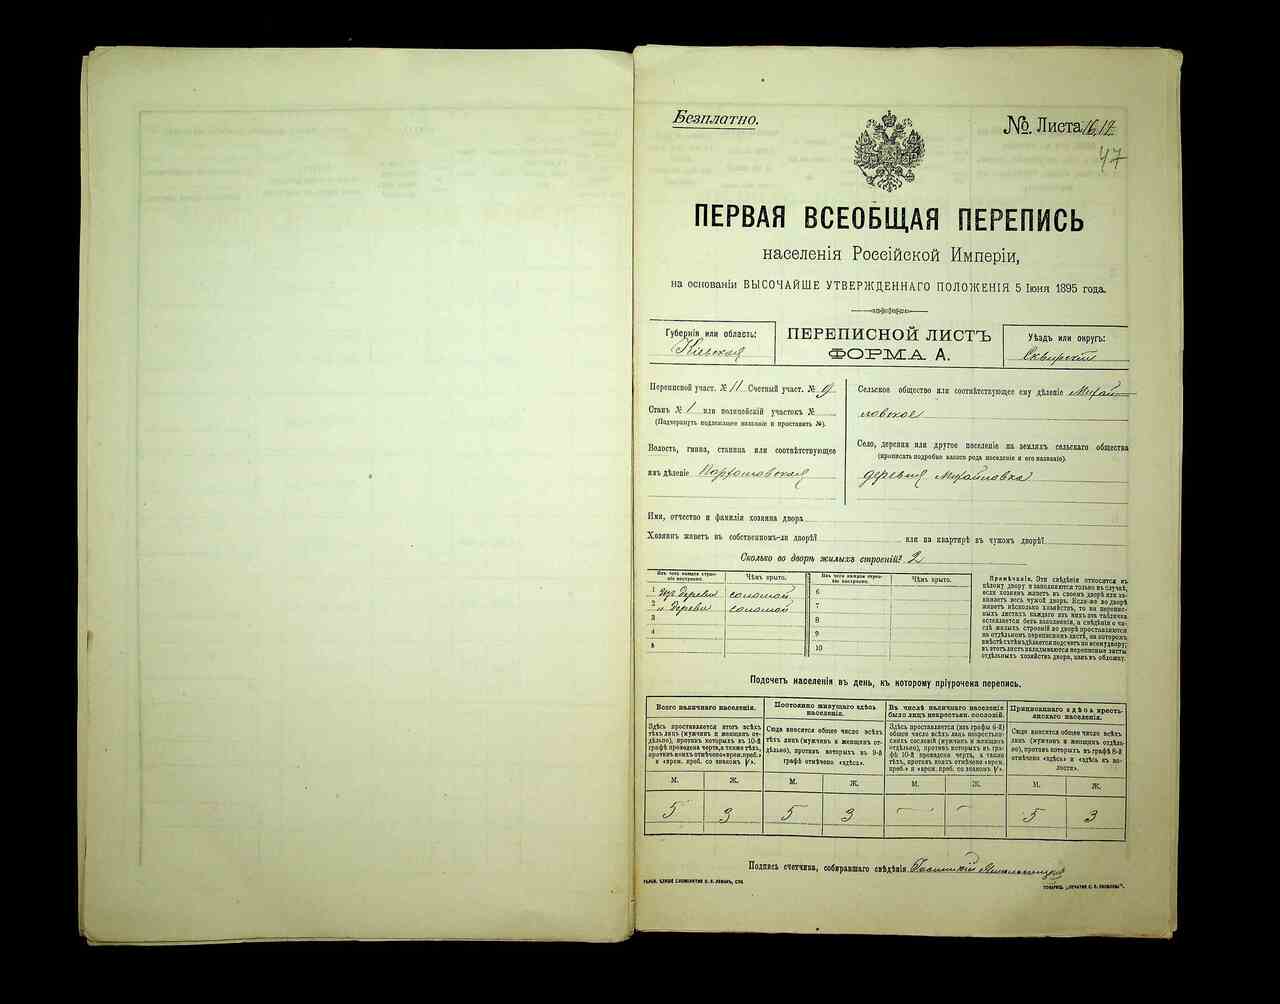 Безплатно.
№. Листа 16,17
47
ПЕРВАЯ ВСЕОБЩАЯ ПЕРЕПИСЬ
населенія Россійской Имперіи,
на основаніи ВЫСОЧАЙШЕ УТВЕРЖДЕННАГО ПОЛОЖЕНІЯ 5 Іюня 1895 года.
Губернія или область:
Кіевская
ПЕРЕПИСНОЙ ЛИСТЪ
ФОРМА А.
Уѣздъ или округъ:
Сквирскій
Переписной участ. № 11 Счетный участ. № 9
Станъ № 1 или полицейскій участокъ №
(Подчеркнуть подлежащее названіе и проставить №).
Волость, гмина, станица или соотвѣтствующее
имъ дѣленіе
Сельское общество или соотвѣтствующее ему дѣленіе Михай
ловское
Село, деревня или другое поселеніе на земляхъ сельскаго общества
(прописать подробно какого рода поселеніе и его названіе).
деревня Михайловка
Имя, отчество и фамилія хозяина двора
Хозяинъ живетъ въ собственномъ-ли дворѣ? или на квартирѣ въ чужомъ дворѣ?
Сколько во дворѣ жилыхъ строеній? 2
Изъ чего каждое строе-
ніе построено.
Чѣмъ крыто.
1 Изъ дерева соломой
2 " дерева соломой
3
4
5
Изъ чего каждое строе-
ніе построено.
Чѣмъ крыто.
6
7
8
9
10
Примѣчаніе. Эти свѣдѣнія относятся къ
цѣлому двору и заполняются только въ случаѣ,
если хозяинъ живетъ въ своемъ дворѣ или за-
нимаетъ весь чужой дворъ. Если-же во дворѣ
живетъ нѣсколько хозяйствъ, то на перепис-
ныхъ листахъ каждаго изъ нихъ эта табличка
остается безъ заполненія, а свѣдѣнія о чи-
слѣ жилыхъ строеній во дворѣ проставляются
на отдѣльномъ переписномъ листѣ, на которомъ
вмѣстѣ съ тѣмъ дѣлается подсчетъ по всему двору;
въ этотъ листъ вкладываются переписные листы
отдѣльныхъ хозяйствъ двора, какъ въ обложку.
Подсчетъ населенія въ день, къ которому пріурочена перепись.
Всего наличнаго населенія.
Здѣсь проставляется итогъ всѣхъ
тѣхъ лицъ (мужчинъ и женщинъ от-
дѣльно), противъ которыхъ въ 10-й
графѣ проведена черта, а также тѣхъ,
противъ коихъ отмѣчено «врем. преб.»
и «врем. преб. со знакомъ V».
М. Ж.
5 3
Постоянно живущаго здѣсь
населенія.
Сюда вносится общее число всѣхъ
тѣхъ лицъ (мужчинъ и женщинъ от-
дѣльно), противъ которыхъ въ 9-й
графѣ отмѣчено «здѣсь».
М. Ж.
5 3
Въ числѣ наличнаго населенія
было лицъ некрестьян. сословій.
Здѣсь проставляется (изъ графы 6-й)
общее число всѣхъ лицъ некрестьян-
скихъ сословій (мужчинъ и женщинъ
отдѣльно), противъ которыхъ въ гра-
фѣ 10-й проведена черта, а также
тѣхъ, противъ коихъ отмѣчено «врем.
преб.» и «врем. преб. со знакомъ V».
М. Ж.
— —
Приписаннаго здѣсь кресть-
янскаго населенія.
Сюда вносится общее число всѣхъ
лицъ (мужчинъ и женщинъ отдѣль-
но), противъ которыхъ въ графѣ 8-й
отмѣчено «здѣсь» и «здѣсь къ во-
лости».
М. Ж.
5 3
Подпись счетчика, собиравшаго свѣдѣнія